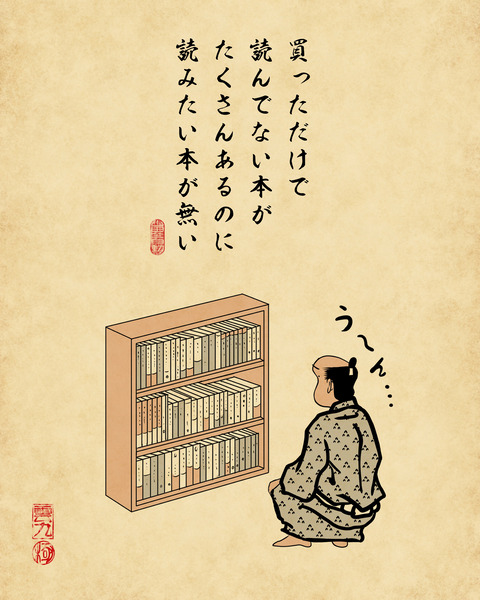 買っただけで
読んでない本が
たくさんあるのに
読みたい本が無い
う〜ん…